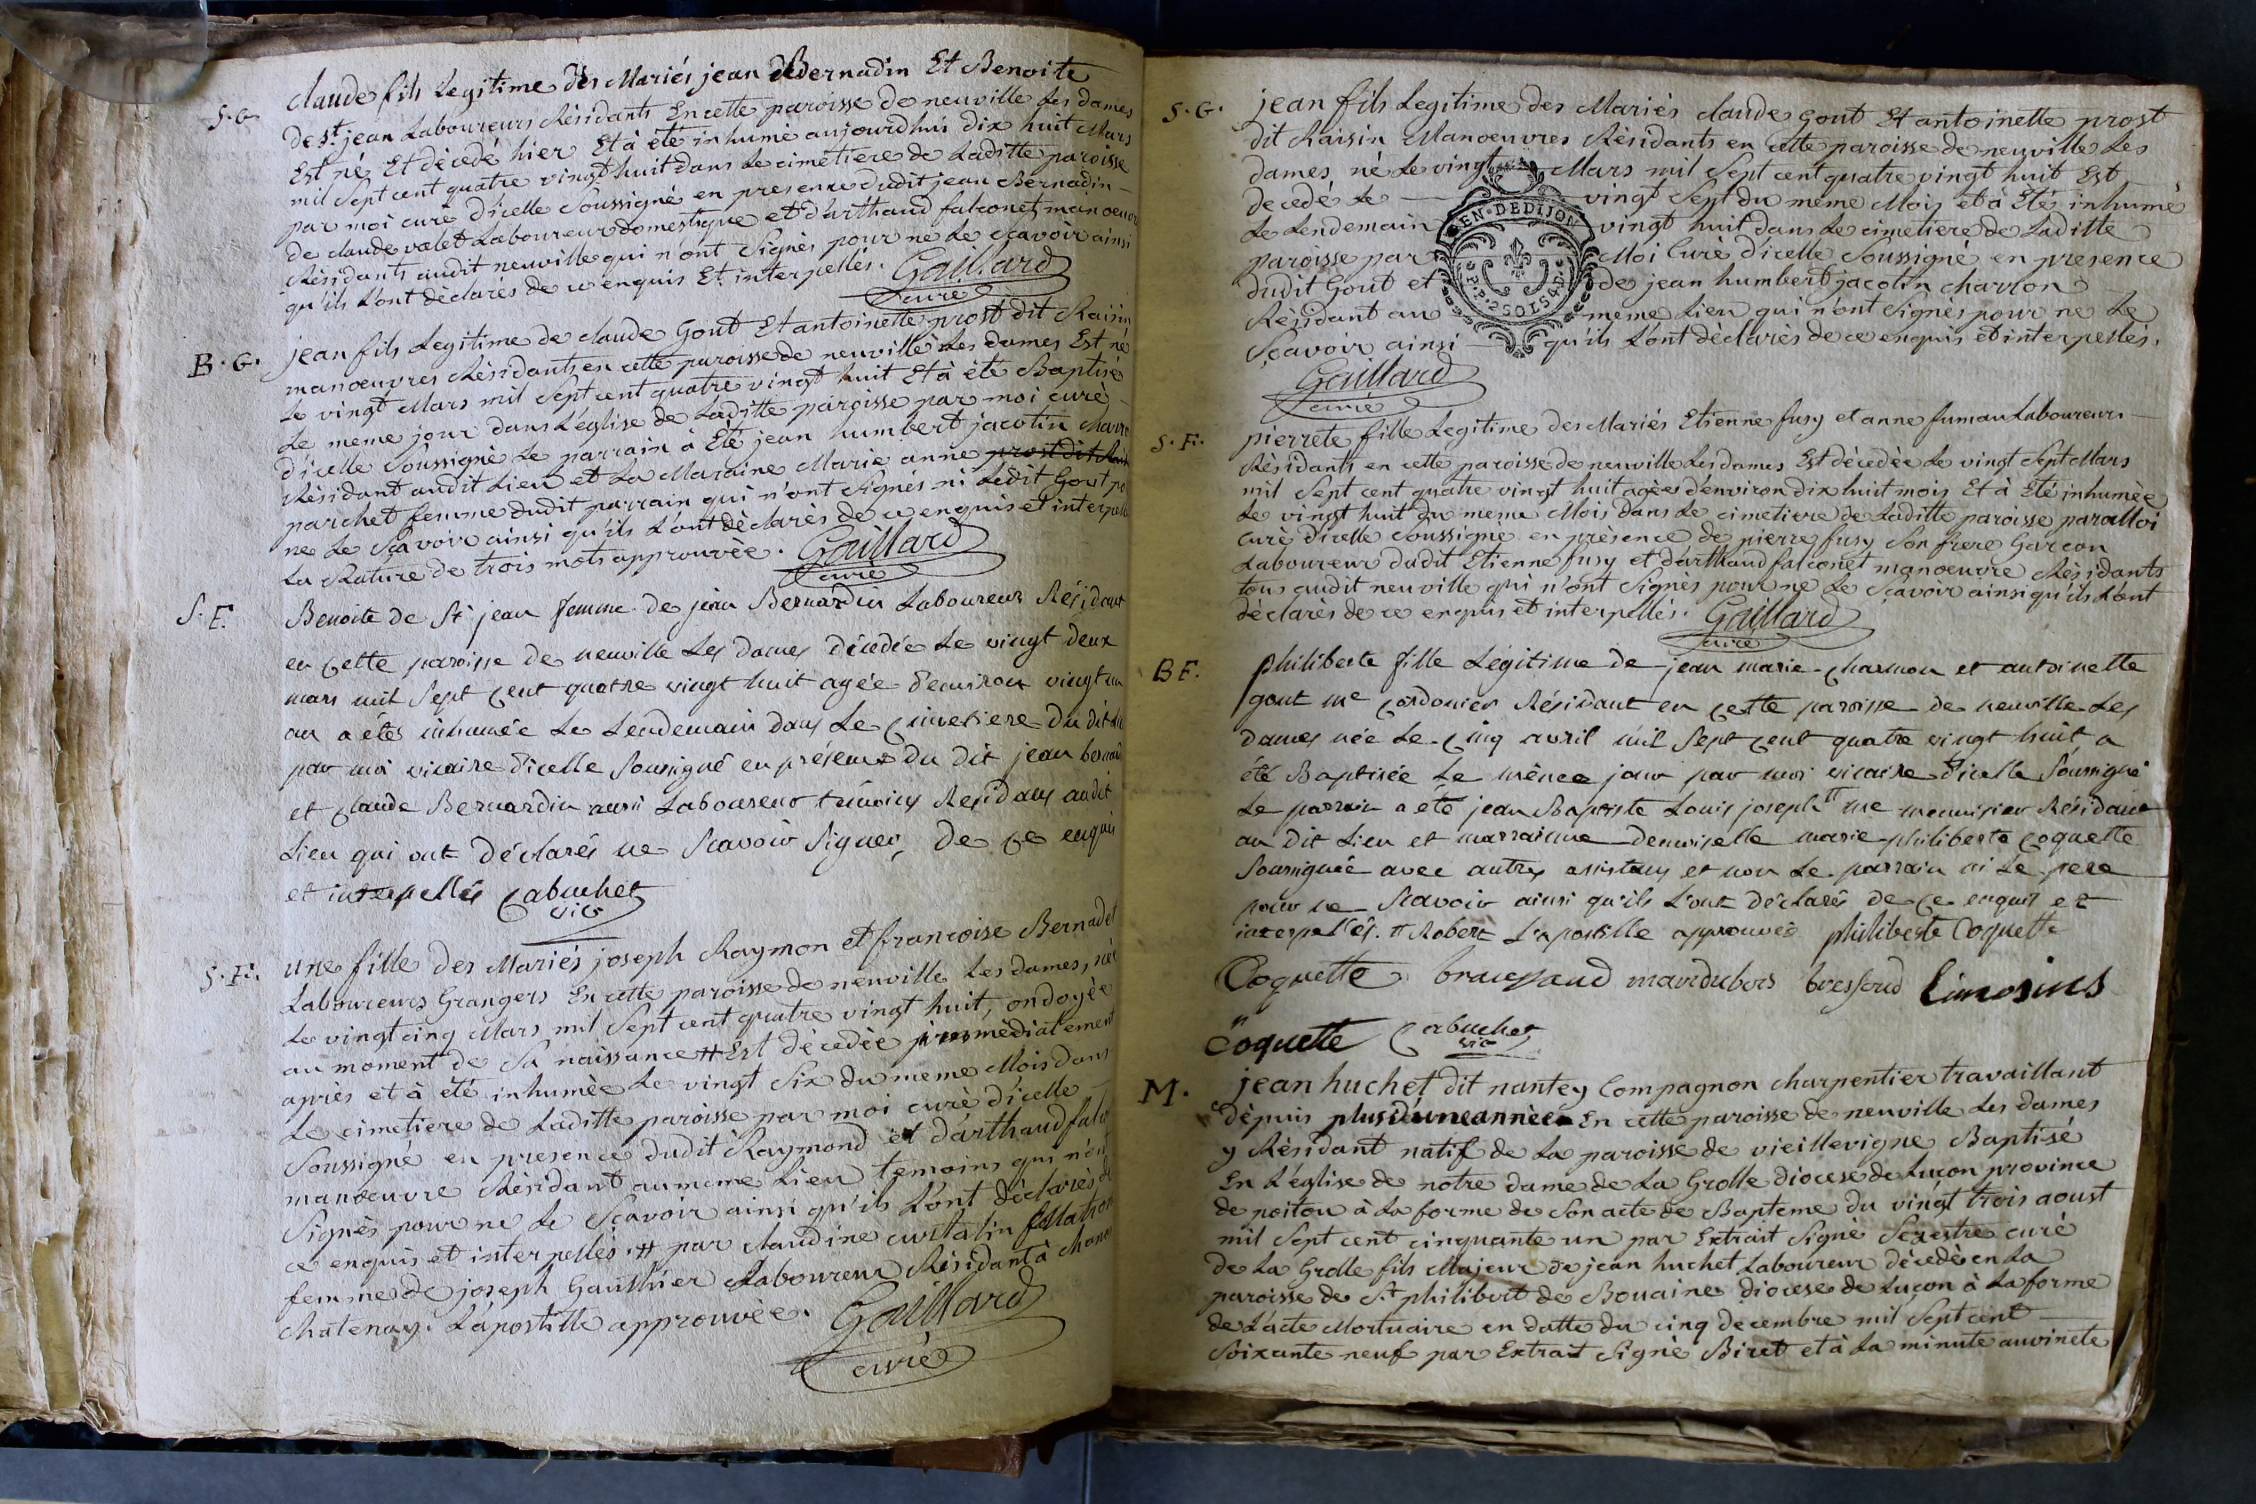 S. G.
claude fils Legitime des Mariés jean Bernadin Et Benoite
de St. jean Laboureurs Résidants En cette paroisse de neuville les dames
Est né Et dècedé hier Et à été inhumé aujourdhui dix huit Mars
mil Sept cent quatre vingt huit dans Le cimetiere de Laditte paroisse
par moi curé d'icelle Soussigné en presence dudit jean Bernadin
de claude valet Laboureur domestique et d'arthaud falconet manoeuv
Résidants audit neuville qui n'ont Signés pour ne Le sçavoir ainsi
qu'ils L'ont dèclarés de ce enquis Et interpellés. Gaillard
curé
B. G.
jean fils Legitime de claude Gout Et antoinette prost dit Raisin
manoeuvres Résidants en cette paroisse de neuville Les dames Est né
Le vingt Mars mil Sept cent quatre vingt huit Et à été Baptisé
Le meme jour dans L'église de Laditte paroisse par moi curé
d'icelle Soussigné Le parrain à Eté jean humbert jacolin
Résidant audit Lieu et La Maraine Marie anne prost dit
parchet femme dudit parrain qui n'ont Signés ni Ledit Gout po
ne Le Sçavoir ainsi qu'ils L'ont dèclarés de ce enquis et interpell
La Rature de trois mots approuvée. Gaillard
curé
S. F.
Benoite de St jean femme de jean Bernardin Laboureur Résidant
en cette paroisse de neuville Les dames décedée Le vingt deux
mars mil Sept cent quatre vingt huit agée d'environ vingt un
an a étés inhumée Le Lendemain dans Le cimetiere du dit
par moi vicaire d'icelle Soussigné en présence Du dit jean bernad
et claude Bernardin aussi Laboureur témoins Residans audit
Lieu qui ont Déclarés ne Scavoir Signer, De ce enquis
et interpellés Cabuchet
vic
S. F.
une fille des Mariés joseph Raymon et françoise Bernadet
Laboureurs Grangers En cette paroisse de neuville Les dames, née
Le vingt cinq Mars mil Sept cent quatre vingt huit, ondoyée
au moment de Sa naissance # Est décedée immèdiatement
après et à été inhumèe Le vingt Six du meme Mois dans
Le cimetiere de Laditte paroisse par moi curè d'icelle
Soussigné en presence dudit Raymond et d'arthaud falco
manoeuvre Résidant au meme Lieu temoins qui n'ont
Signès pour ne Le Sçavoir ainsi qu'ils L'ont dèclarès de
ce enquis et interpellès # par claudine
femme de joseph Gauthier Laboureur Résidant à
chatenay. L'apostille approuvèe. Gaillard
curè
S. G.
jean fils Legitime des Mariès claude Gout Et antoinette prost
dit Raisin Manoeuvres Résidants en cette paroisse de neuville Les
dames né Le vingt Mars mil Sept cent quatre vingt huit Est
decedé Le vingt Sept du meme Mois et à Eté inhumé
Le Lendemain vingt huit dans Le cimetiere de Laditte
paroisse par Moi Curè d'icelle Soussigné en presence
dudit Gout et de jean humbert jacolin charlon
Rèsidant au meme Lieu qui n'ont Signès pour ne Le
Sçavoir ainsi qu'ils L'ont dèclarès de ce enquis et interpellés.
GEN. DE DIJON
Gaillard
curé
S. F.
pierrete fille Legitime des Mariés Etienne fusy et anne fuman Laboureurs
Rèsidants en cette paroisse de neuville Les dames Est dècedèe Le vingt Sept Mars
mil Sept cent quatre vingt huit agèe d'environ dix huit mois Et à Eté inhumèe
Le vingt huit du meme Mois dans Le cimetiere de Laditte paroisse par Moi
Curè d'icelle Soussigné en présence de pierre fusy Son frere Garçon
Laboureur dudit Etienne fusy et d'arthaud falconet manoeuvre Résidants
tous audit neuville qui n'ont Signès pour ne Le Sçavoir ainsi qu'ils L'ont
dèclarès de ce enquis et interpellés. Gaillard
curé
B F.
philiberte fille Légitime de jean marie charmon et antoinette
gout me cordonier Résidant en cette paroisse de neuville Les
dames née Le cinq avril mil Sept cent quatre vingt huit a
été Baptisée Le même jour par moi vicaire d'icelle Soussigné
Le parrain a été jean Baptiste Louis joseph # me menuisier Résidant
au dit Lieu et marraine demoiselle marie philiberte Coquette
Soussignée avec autres assistans et non Le parrain ni Le pere
pour ne Scavoir ainsi qu'ils L'ont Déclarés de ce enquis et
interpellés. # Robert L'apostille approuvée philiberte Coquette
Coquette bressoud Limosins
Coquette Cabuchet
vic
M.
jean huchet dit nantey Compagnon charpentier travaillant
dèpuis plus d'une année En cette paroisse de neuville Les dames
y Résidant natif de La paroisse de vieillevigne Baptisé
En L'église de notre dame de La Grolle diocese de Luçon province
de poitou à La forme de Son acte de Bapteme du vingt trois aoust
mil Sept cent cinquante un par Extrait Signè curé
de La Grolle fils Majeur de jean huchet Laboureur dècedè en La
paroisse de St philibert de Bouaine diocese de Luçon à La forme
de L'acte Mortuaire en datte du cinq decembre mil Sept cent
Soixante neuf par Extrait Signè Biret et à La minute auvinete